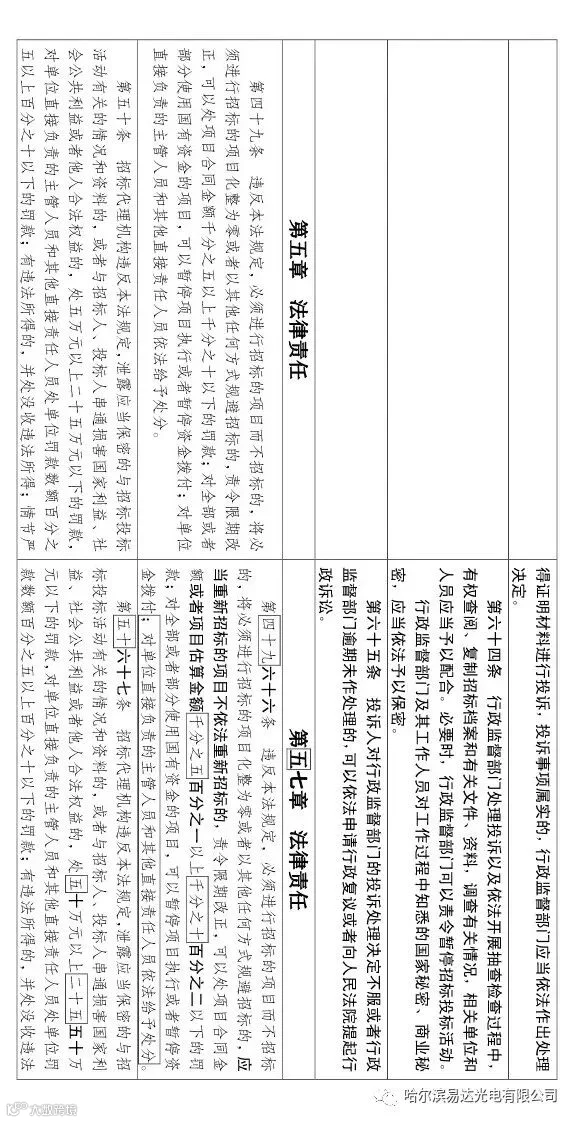 得证明材料进行投诉，投诉事项属实的，行政监督部门应当依法作出处理
决定。
第六十四条　行政监督部门处理投诉以及依法开展抽查检查过程中，
有权查阅、复制招标档案和有关文件、资料，调查有关情况，相关单位和
人员应当予以配合。必要时，行政监督部门可以责令暂停招标投标活动。
行政监督部门及其工作人员对工作过程中知悉的国家秘密、商业秘
密，应当依法予以保密。
第六十五条　投诉人对行政监督部门的投诉处理决定不服或者行政
监督部门逾期未作处理的，可以依法申请行政复议或者向人民法院提起行
政诉讼。
第五章　法律责任
第五七章　法律责任
第四十九条　违反本法规定，必须进行招标的项目而不招标的，将必
须进行招标的项目化整为零或者以其他任何方式规避招标的，责令限期改
正，可以处项目合同金额千分之五以上千分之十以下的罚款；对全部或者
部分使用国有资金的项目，可以暂停项目执行或者暂停资金拨付；对单位
直接负责的主管人员和其他直接责任人员依法给予处分。
第四十九六十六条　违反本法规定，必须进行招标的项目而不招标
的，将必须进行招标的项目化整为零或者以其他任何方式规避招标的，应
当重新招标的项目不依法重新招标的，责令限期改正，可以处项目合同金
额或者项目估算金额千分之五百分之一以上千分之十百分之二以下的罚
款；对全部或者部分使用国有资金的项目，可以暂停项目执行或者暂停资
金拨付；对单位直接负责的主管人员和其他直接责任人员依法给予处分。
第五十条　招标代理机构违反本法规定，泄露应当保密的与招标投标
活动有关的情况和资料的，或者与招标人、投标人串通损害国家利益、社
会公共利益或者他人合法权益的，处五万元以上二十五万元以下的罚款，
对单位直接负责的主管人员和其他直接责任人员处单位罚款数额百分之
五以上百分之十以下的罚款；有违法所得的，并处没收违法所得；情节严
第五十六十七条　招标代理机构违反本法规定，泄露应当保密的与招
标投标活动有关的情况和资料的，或者与招标人、投标人串通损害国家利
益、社会公共利益或者他人合法权益的，处五十万元以上二十五五十万
元以下的罚款，对单位直接负责的主管人员和其他直接责任人员处单位罚
款数额百分之五以上百分之十以下的罚款；有违法所得的，并处没收违法
哈尔滨易达光电有限公司
大业跨境